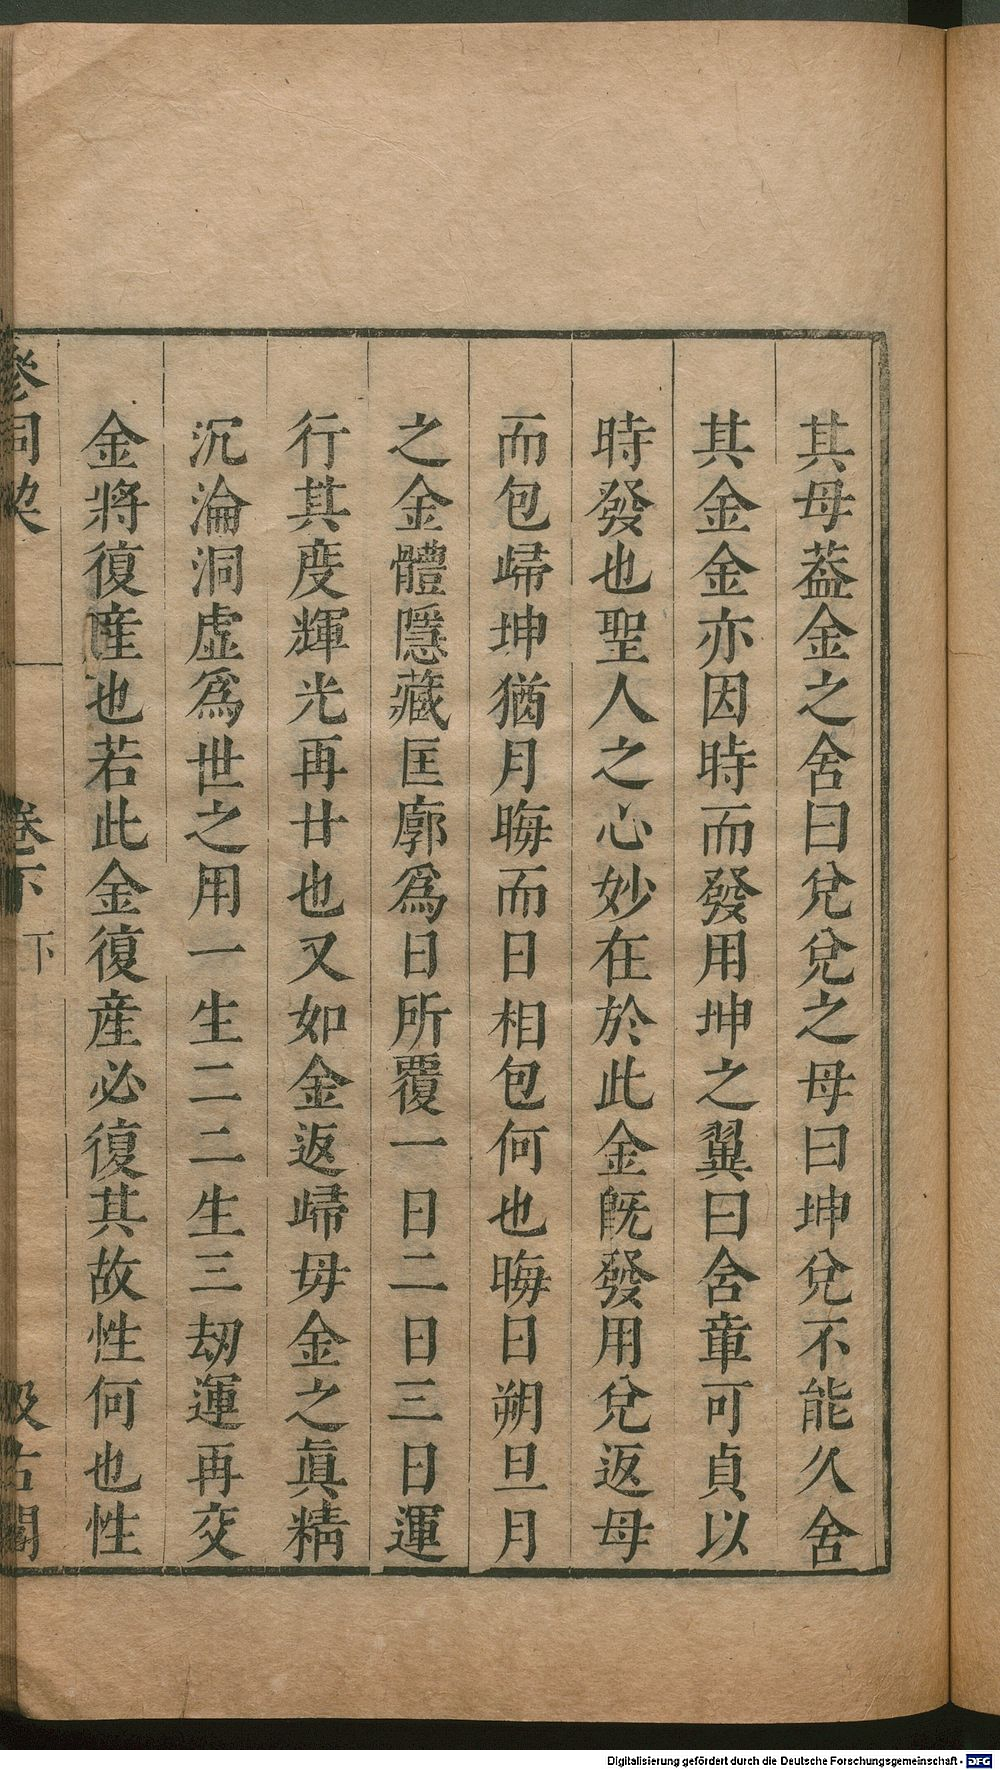 其母葢金之舍曰兌兌之母曰坤兌不能久舍
其金金亦因時而發用坤之翼曰含章可貞以
時發也聖人之心妙在於此金旣發用兌返母
而包歸坤猶月晦而日相包何也晦日朔旦月
之金體隱藏匡廓爲日所覆一日二日三日運
行其度輝光再廿也又如金返歸毋金之眞精
沉淪洞虛爲世之用一生二二生三刼運再交
金將復産也若此金復産必復其故性何也性
參同契 卷下 下 汲古閣
Digitalisierung gefördert durch die Deutsche Forschungsgemeinschaft - DFG